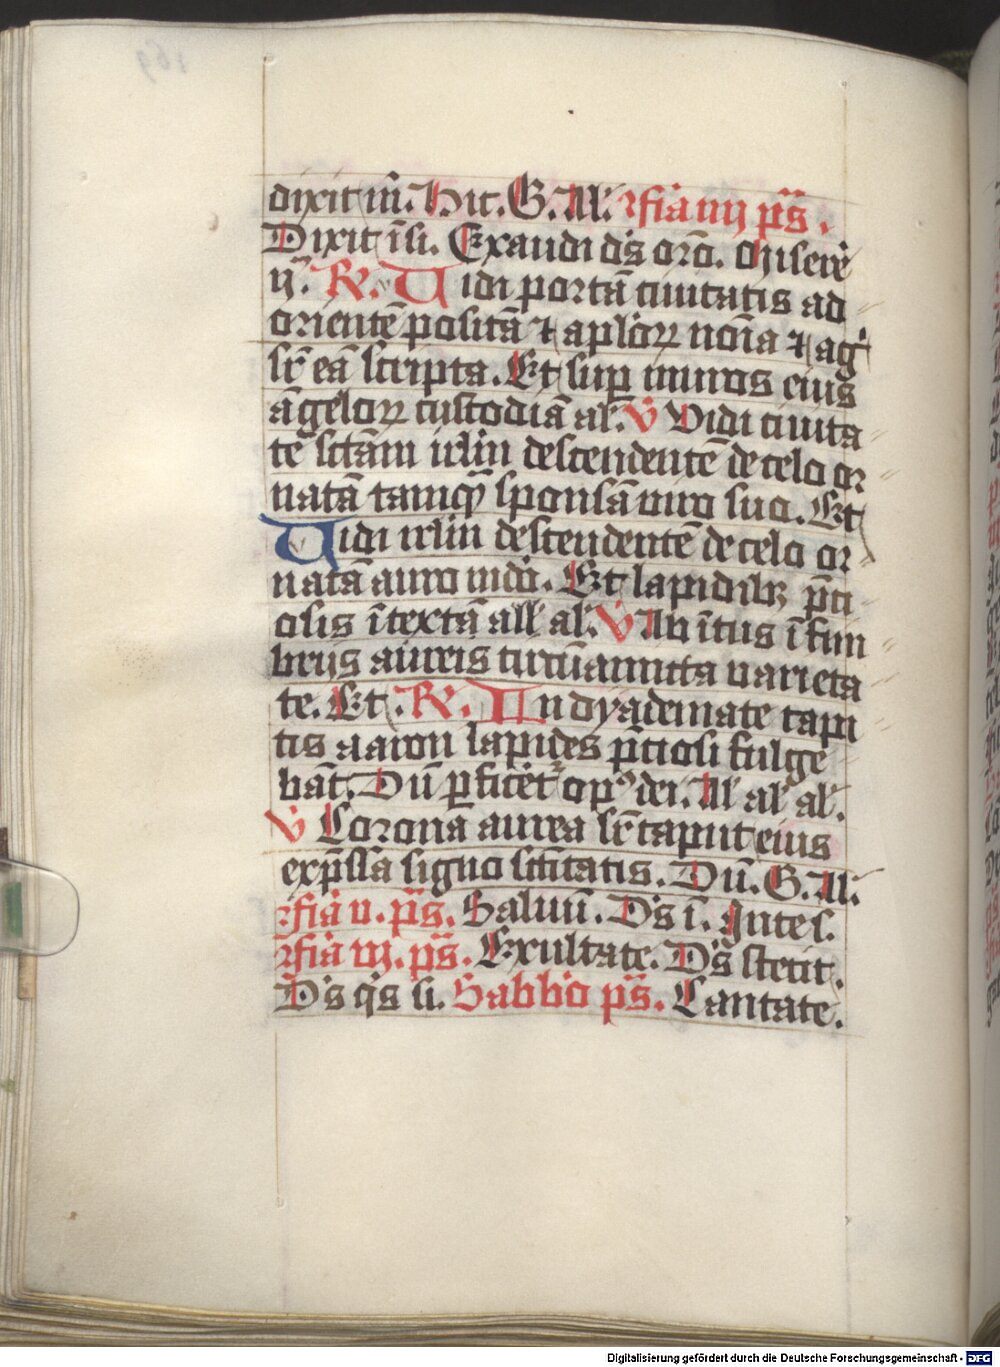 dixit m̄. Hic. G. All. ꝛfia iiij p̄s.
Dixit īsi. Exaudi d̄s orō. Misere
ij. R̄. Vidi portā ciuitatis ad
orientē positā ⁊ aplorꝝ noīa ⁊ ag
sr̄ eā scripta. Et suꝑ muros eius
āgelorꝝ custodiā al. v̄ Vidi ciuita
tē sctām irlm̄ descendentē de celo or
natā tamqꝫ sponsā uiro suo. Et
Vidi irlm̄ descendentē de celo or
natā auro mūdo. Et lapidibꝫ p̄ci
osis ītextā all al. v̄ Ab ītus ī fim
brijs aureis circūamicta uarieta
te. Et. R̄. In dyademate capi
tis aaron lapides p̄ciosi fulge
bāt. Dū ꝑficēt opꝰ dei. All al al.
v̄ Corona aurea sr̄ caput eius
exp̄ssa signo sctītatis. Dū. G. All.
ꝛfia v. p̄s. Saluū. D̄s ī. Inte s.
ꝛfia vj. p̄s. Exultate. D̄s stetit.
D̄s q̄s si. Sabbō p̄s. Cantate.
169
Digitalisierung gefördert durch die Deutsche Forschungsgemeinschaft - DFG